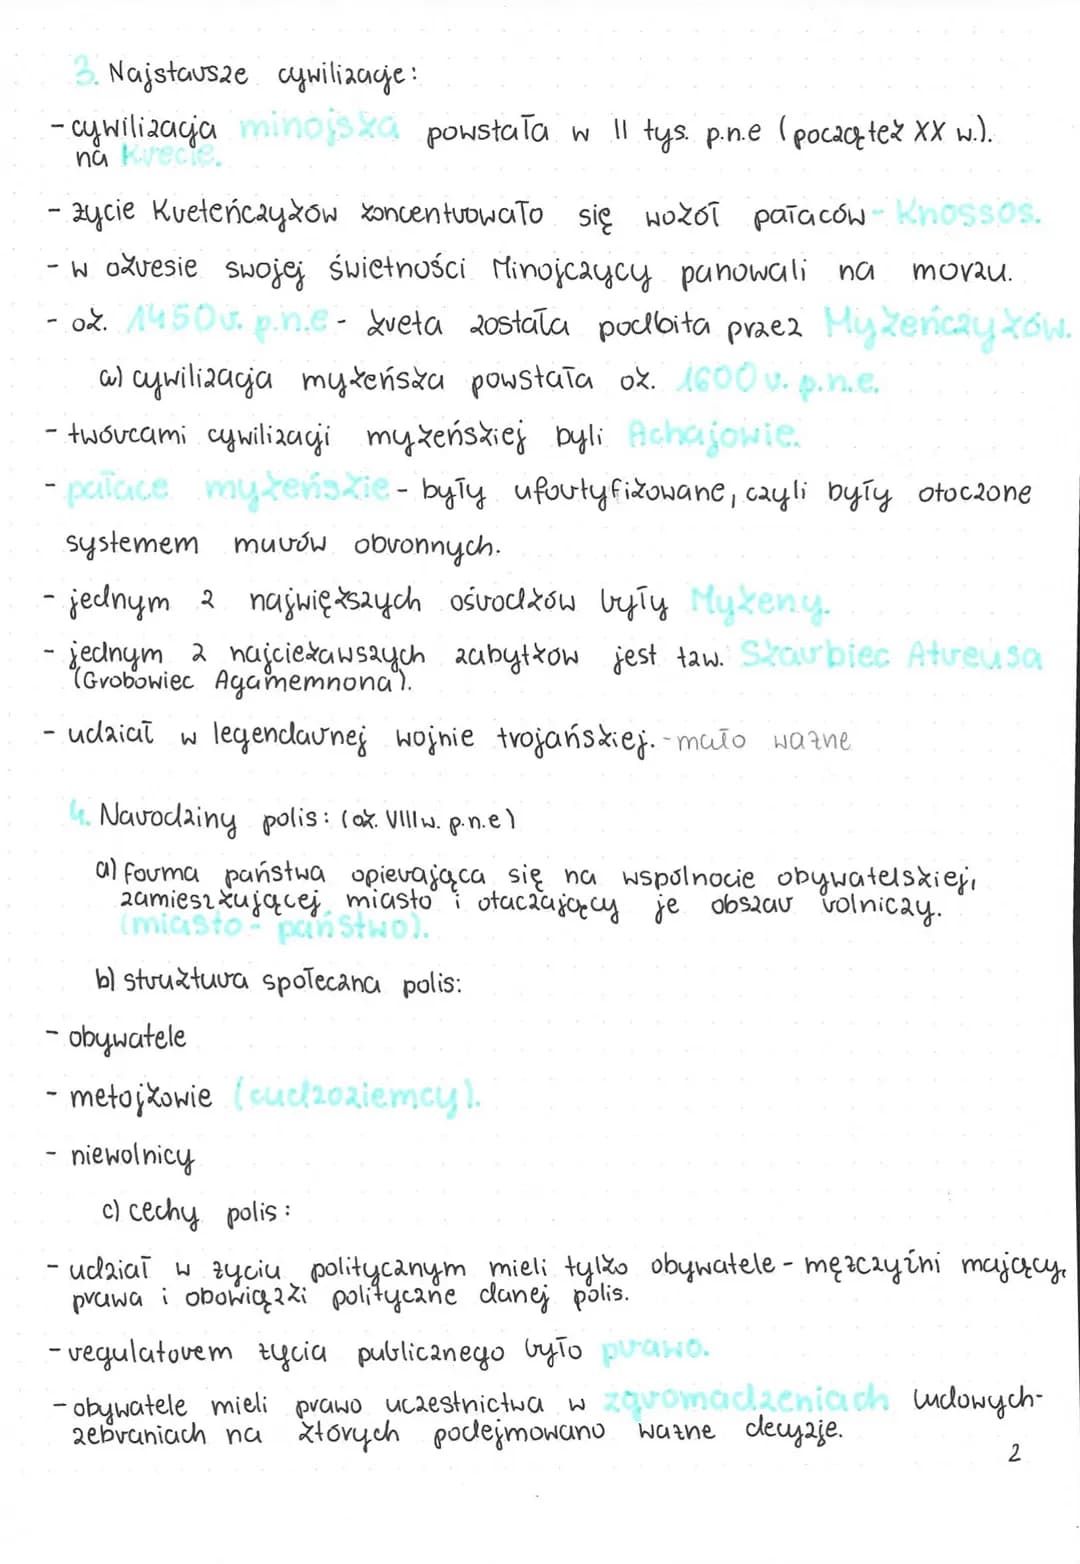 3. Najstarsze cywilizacje:
- cywilizacja minojska powstała w II tys. p.n.e (początek XX w.).
na Krecie.
- życie Kreteńczyków koncentrowało się wokół pałaców - Knossos.
- w okresie swojej świetności Minojczycy panowali na morzu.
- ok. 1450r. p.n.e - kreta została podbita przez Mykeńczyków.
a) cywilizacja mykeńska powstała ok. 1600 r. p.n.e.
- twórcami cywilizacji mykeńskiej byli Achajowie.
- pałace mykeńskie - były ufortyfikowane, czyli były otoczone
systemem murów obronnych.
- jednym z największych ośrodków były Mykeny.
- jednym z najciekawszych zabytków jest tzw. Skarbiec Atreusza
(Grobowiec Agamemnona).
- udział w legendarnej wojnie trojańskiej. - mało ważne
4. Narodziny polis: (ok. VIII w. p.n.e)
a) forma państwa opierająca się na wspólnocie obywatelskiej,
zamieszkującej miasto i otaczający je obszar rolniczy.
(miasto - państwo).
b) struktura społeczna polis:
- obywatele
- metojkowie (cudzoziemcy).
- niewolnicy
c) cechy polis:
- udział w życiu politycznym mieli tylko obywatele - mężczyźni mający
prawa i obowiązki polityczne danej polis.
- regulatorem życia publicznego było prawo.
- obywatele mieli prawo uczestnictwa w zgromadzeniach ludowych-
zebraniach na których podejmowano ważne decyzje.
2